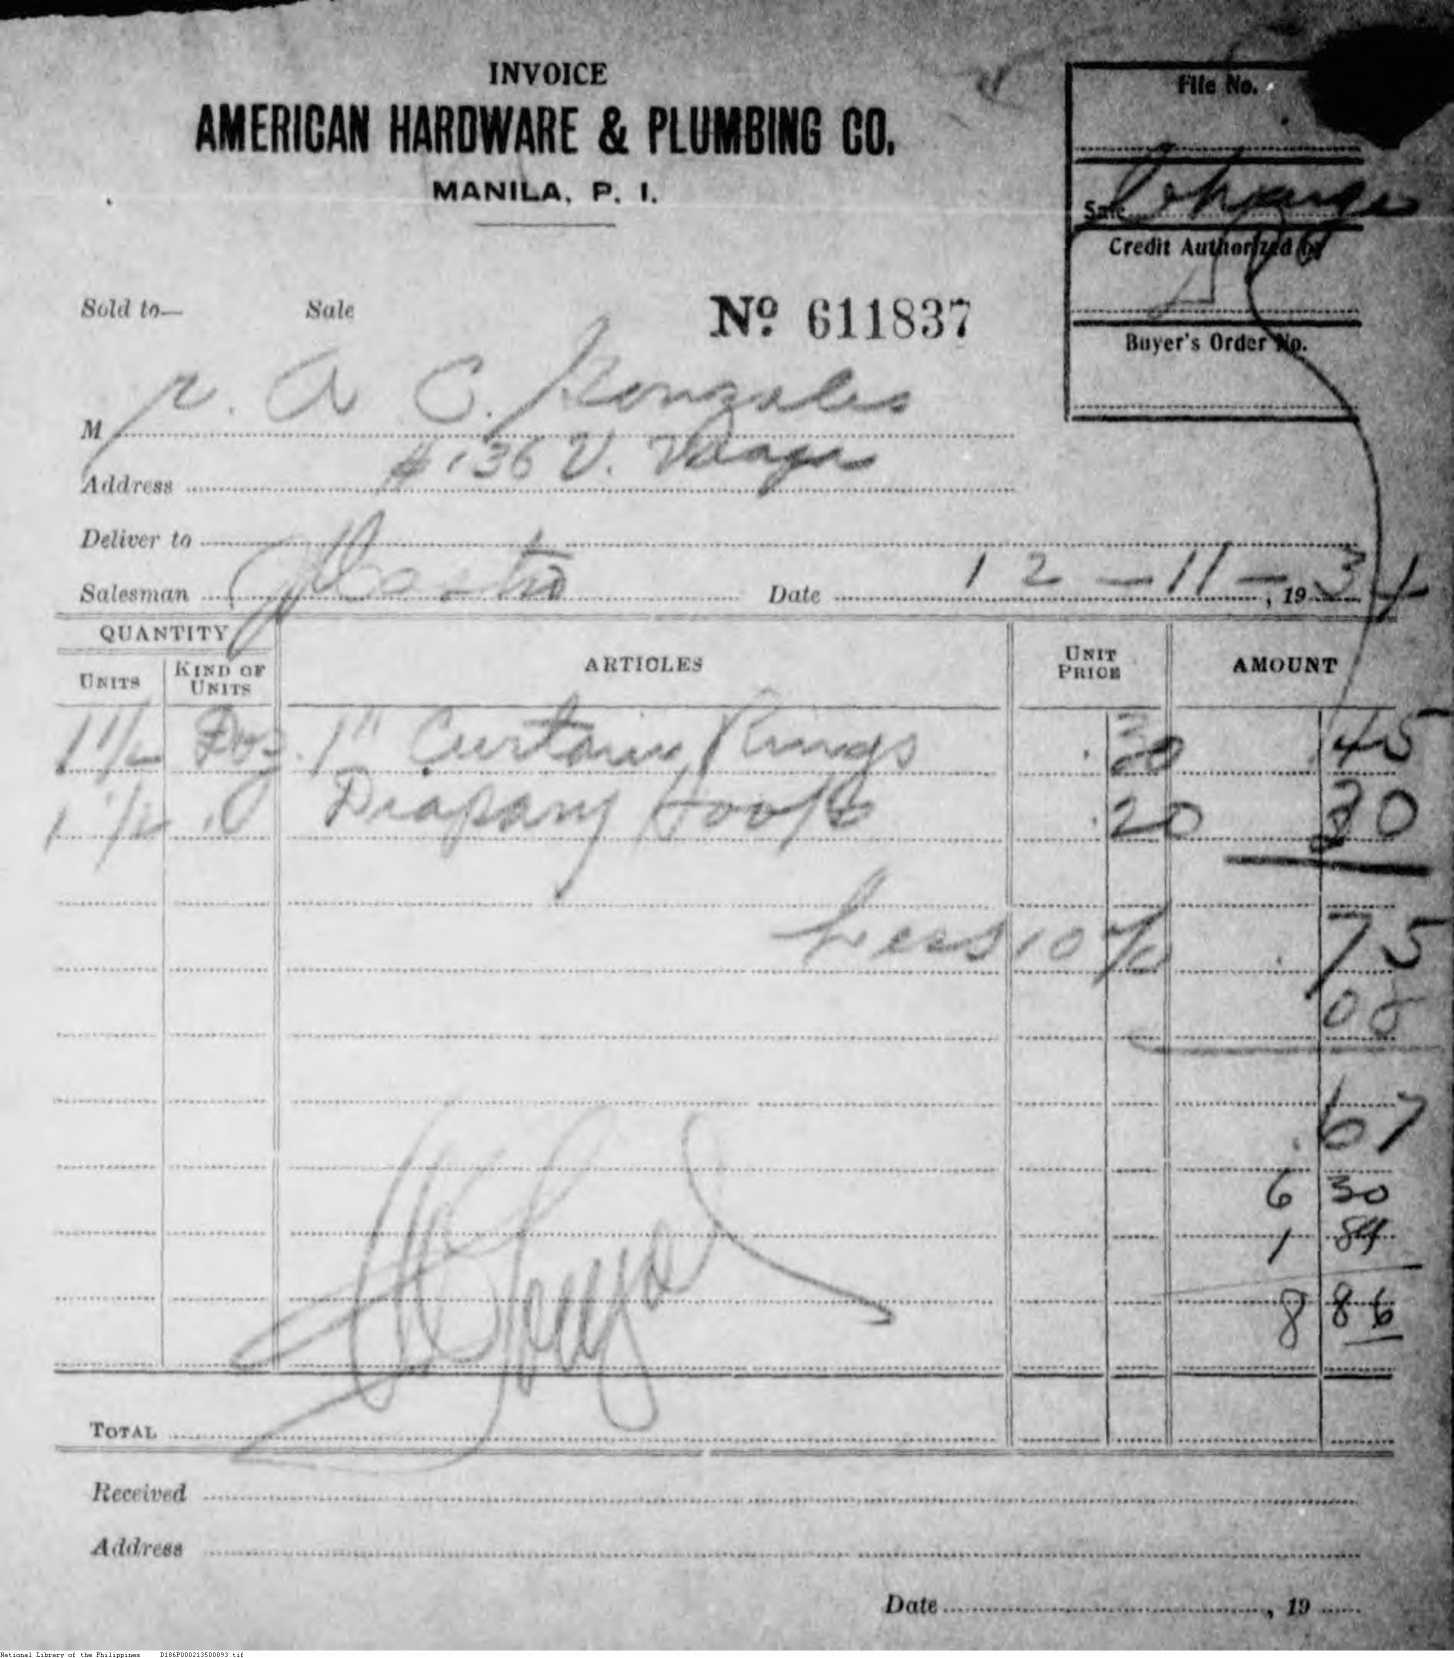 INVOICE
AMERICAN HARDWARE & PLUMBING CO.
MANILA, P. I.
File No.
Sale Charge
Credit Authorized by
Buyer's Order No.
Sold to— Sale
Nº 611837
Mr. A C. Gonzales
Address #136 V.
Deliver to
Salesman Date 12-11-, 1934
QUANTITY
UNITS KIND OF UNITS ARTICLES UNIT PRICE AMOUNT
1 1/2 Doz. 1" Curtain Rings .30 .45
1 1/2 " Drapary Hooks .20 30
Less 10% .75
08
.67
6 30
1 89
8 86
TOTAL
Received
Address
Date , 19
National Library of the Philippines D186P000213500093.tif